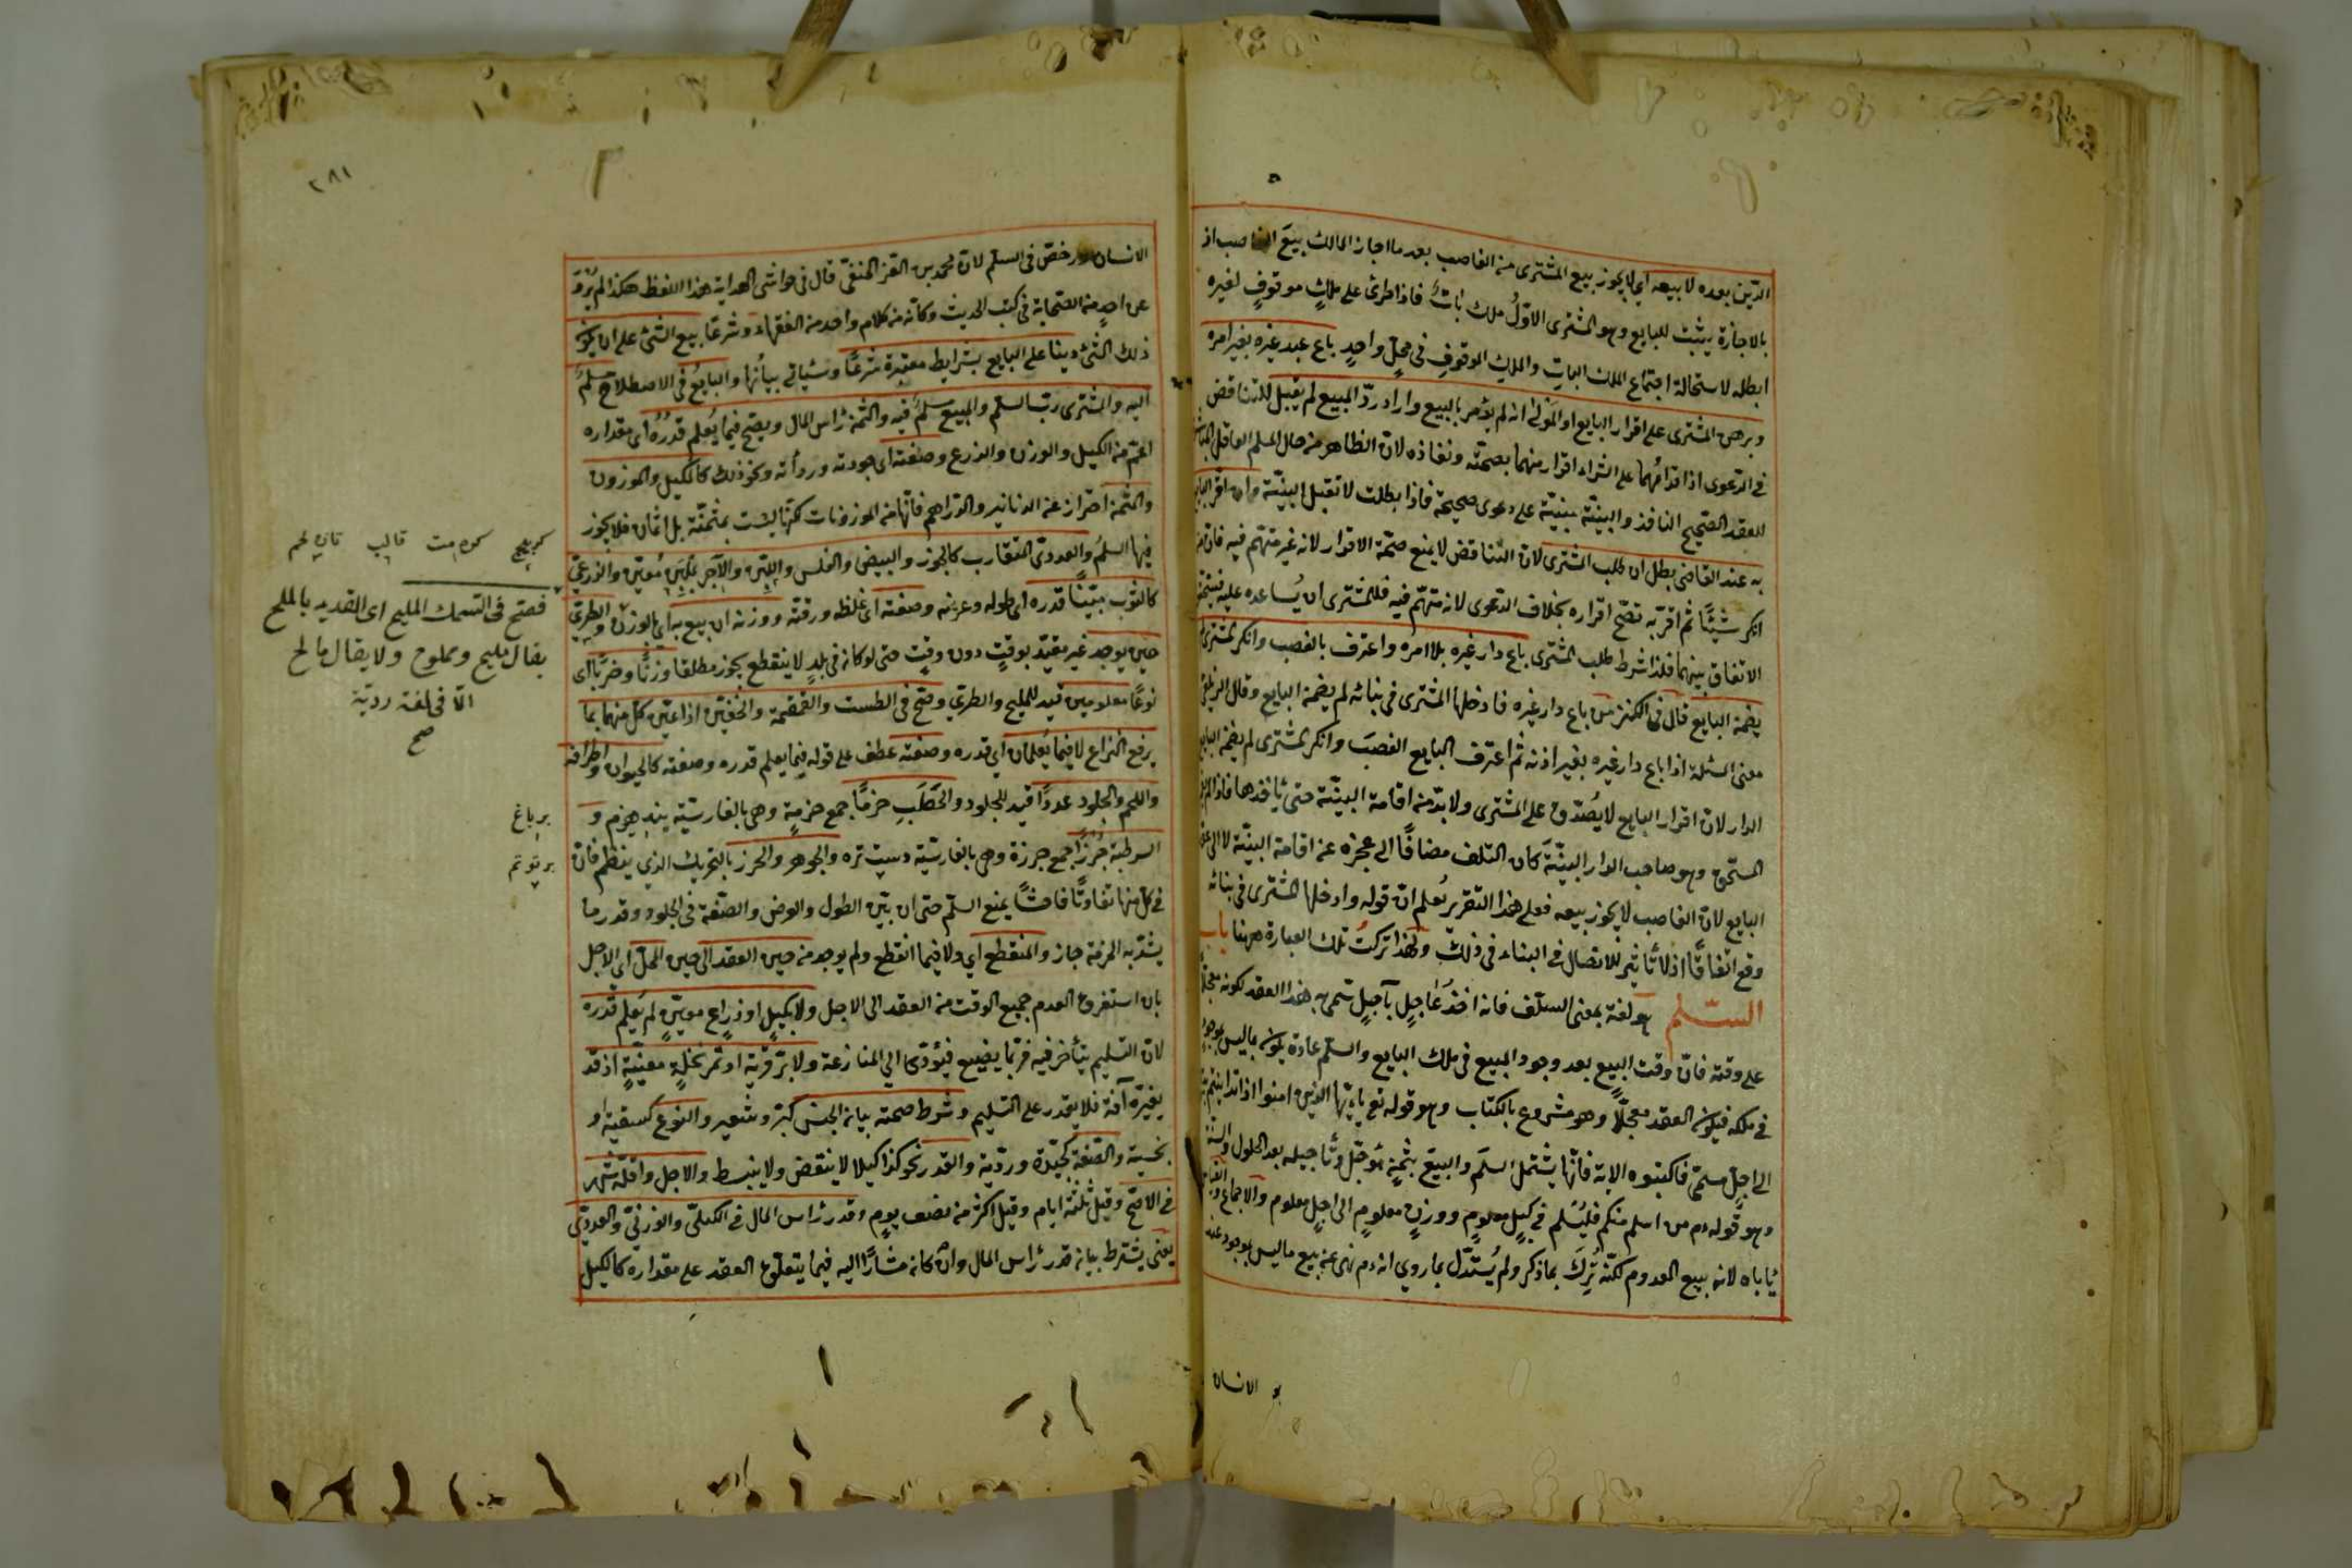 الدين بعده لا بيعه اي لا يجوز بيع المشترى من الغاصب بعد ما اجاز المالك بيع الغاصب اذ
بالاجازة يثبت للبايع وهو المشترى الاول ملك بات فاذا طرئ على ملك موقوف لغيره
ابطله لاستحالة اجتماع الملك البات والملك الموقوف فى محل واحد باع عبد غيره بغير امره
وبرهن المشترى على اقرار البايع او المولى انه لم يؤمر بالبيع واراد رد المبيع لم يقبل للتناقض
فى الدعوى اذ اقدامهما على الشراء اقرار منهما بصحته ونفاذه لان الظاهر من حال المسلم العاقل المباشر
للعقد الصحيح النافذ والبينة مبنية على دعوى صحيحة فاذا بطلت لا تقبل البينة وان اقر البايع
به عند القاضى بطل ان طلب المشترى لان التناقض لا يمنع صحة الاقرار لانه غير متهم فيه فان من
انكر شيئا ثم اقر به تصح اقراره بخلاف الدعوى لانه متهم فيه فللمشترى ان يساعده عليه فيتحقق
الاتفاق بينهما فلذا شرط طلب المشترى باع دار غيره بلا امره واعترف بالغصب وانكر المشترى لم
يضمن البايع قال فى الكنز من باع دار غيره فادخلها المشترى فى بنائه لم يضمن البايع وقال الزيلعى
معنى المسئلة اذا باع دار غيره بغير اذنه ثم اعترف البايع الغصب وانكر المشترى لم يضمن البايع
الدار لان اقرار البايع لا يصدق على المشترى ولا بد من اقامة البينة حتى يأخذها فاذا لم يقم
المستحق وهو صاحب الدار البينة كان التلف مضافا الى عجزه عن اقامة البينة لا الى عقد
البايع لان الغاصب لا يجوز بيعه فعلى هذا التقرير يعلم ان قوله وادخلها المشترى فى بنائه
وقع اتفاقا اذ لا تأثير للاتصال فى البناء فى ذلك ولهذا تركت تلك العبارة ههنا باب
السلم هو لغة بمعنى السلف فانه اخذ عاجل بآجل سمى به هذا العقد لكونه معجلا
على وقته فان وقت البيع بعد وجود المبيع فى ملك البايع والسلم عادة يكون بما ليس بموجود
فى ملكه فيكون العقد معجلا وهو مشروع بالكتاب وهو قوله تع يا ايها الذين امنوا اذا تداينتم بدين
الى اجل مسمى فاكتبوه الاية فانها يشتمل السلم والبيع بثمن مؤجل وتأجيله بعد الحلول والسنة
وهو قوله عم من اسلم منكم فليسلم فى كيل معلوم ووزن معلوم الى اجل معلوم والاجماع والقياس
يأباه لانه بيع المعدوم لكنه ترك بما ذكر ولم يستدل بما روي انه عم نهى عن بيع ما ليس بموجود عند
الانسان
٢٨١
الانسان ورخص فى السلم لان محمد بن العز الحنفى قال فى حواشى الهداية هذا اللفظ هكذا لم يرو
عن احد من الصحابة فى كتب الحديث وكأنه من كلام واحد من الفقهاء وشرعا بيع الشئ على ان يكون
ذلك الشئ دينا على البايع بشرايط معتبرة شرعا وسيأتي بيانها والبايع فى الاصطلاح مسلم
اليه والمشترى رب السلم والمبيع مسلم فيه والثمن رأس المال ويصح فيما يعلم قدره اى مقداره
اعم من الكيل والوزن والذرع وصفته اى جودته وردأته ونحو ذلك كالمكيل والموزون
والمثمن احتراز عن الدنانير والدراهم فانها من الموزونات لكنها ليست بمثمنة بل اثمان فلا يجوز
فيها السلم والعددى المتقارب كالجوز والبيض والفلس واللبن والآجر بملبن معين والذرعى
كالثوب مبينا قدره اى طوله وعرضه وصفته اى غلظه ورقته ووزنه ان بيع به اى بالوزن والطرى
حين يوجد غير مقيد بوقت دون وقت حتى لو كان فى بلد لا ينقطع يجوز مطلقا وزنا وضربا اى
نوعا معلومين قيد للمليح والطري وصح فى الطست والقمقمة والخفين اذا عين كل منهما بما
يرفع النزاع لا فيما يعلمان اي قدره وصفته عطف على قوله فيما يعلم قدره وصفته كالحيوان واطرافه
واللحم والجلود عددا قيد للجلود والحطب حزما جمع حزمة وهى بالفارسية بند هيزم و
الرطبة جرزا جمع جرزة وهى بالفارسية دسته تره والجوهر والخرز بالتحريك الذي ينظم فان
فى كل منها تفاوتا فاحشا يمنع السلم حتى ان بين الطول والعرض والصفة فى الجلود وقدر ما
يشد به الحزمة جاز والمنقطع اي ولا فيما انقطع ولم يوجد من حين العقد الى حين المحل اي الاجل
بان استغرق العدم جميع الوقت من العقد الى الاجل ولا بكيل او ذراع معين لم يعلم قدره
لان التسليم يتأخر فيه فربما يضيع فيؤدى الى المنازعة ولا بر قرية او تمر نخلة معينة اذ قد
يعتريه آفة فلا يقدر على التسليم وشرط صحته بيان الجنس كبر وشعير والنوع كسقية او
بخسية والصفة كجيدة وردية والقدر نحو كذا كيلا لا ينقبض ولا ينبسط والاجل واقله شهر
فى الاصح وقيل ثلثة ايام وقيل اكثر من نصف يوم وقدر رأس المال فى الكيلى والوزنى والعددى
يعنى يشترط بيان قدر رأس المال وان كان مشارا اليه فيما يتعلق العقد على مقداره كالكيل
فصح فى السمك المليح اى القديد بالملح
يقال مليح ومملوح ولا يقال مالح
الا فى لغة ردية
صح